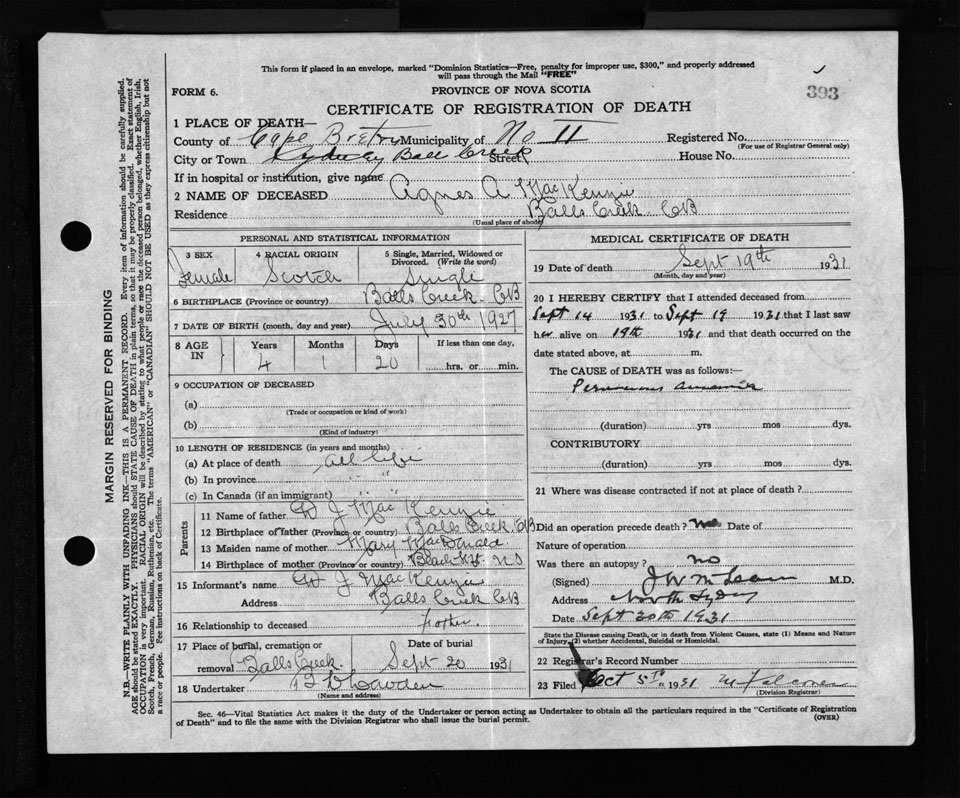 This form if placed in an envelope, marked "Dominion Statistics—Free, penalty for improper use, $300," and properly addressed
will pass through the Mail "FREE"
FORM 6.
PROVINCE OF NOVA SCOTIA
393
CERTIFICATE OF REGISTRATION OF DEATH
1 PLACE OF DEATH—
County of Cape Breton Municipality of No 11 Registered No.
(For use of Registrar General only)
City or Town Sydney Ball Creek Street House No.
If in hospital or institution, give name
2 NAME OF DECEASED Agnes A MacKenzie
Residence Balls Creek CB
(Usual place of abode)
PERSONAL AND STATISTICAL INFORMATION
3 SEX 4 RACIAL ORIGIN 5 Single, Married, Widowed or
Divorced. (Write the word)
Female Scotch Single
6 BIRTHPLACE (Province or country) Balls Creek CB
7 DATE OF BIRTH (month, day and year) July 30th 1927
8 AGE IN Years Months Days If less than one day,
4 1 20 hrs. or min.
9 OCCUPATION OF DECEASED
(a)
(Trade or occupation or kind of work)
(b)
(Kind of industry)
10 LENGTH OF RESIDENCE (in years and months)
(a) At place of death all life
(b) In province " "
(c) In Canada (if an immigrant) " "
Parents
11 Name of father D J MacKenzie
12 Birthplace of father (Province or country) Balls Creek CB
13 Maiden name of mother Mary MacDonald
14 Birthplace of mother (Province or country) N.S
15 Informant's name D J MacKenzie
Address Balls Creek CB
16 Relationship to deceased Father.
17 Place of burial, cremation or Date of burial
removal Balls Creek. Sept 20 1931
18 Undertaker
(Name and address)
MEDICAL CERTIFICATE OF DEATH
19 Date of death Sept 19th 1931
(Month, day and year)
20 I HEREBY CERTIFY that I attended deceased from
Sept 14 1931 to Sept 19 1931 that I last saw
her alive on 19th 1931 and that death occurred on
date stated above, at m.
The CAUSE of DEATH was as follows:—
Pernicious anaemia
(duration) yrs mos dys.
CONTRIBUTORY
(duration) yrs mos dys.
21 Where was disease contracted if not at place of death?
Did an operation precede death? no Date of
Nature of operation
Was there an autopsy? no
(Signed) J W McLean M.D.
Address North Sydney
Date Sept 20th 1931
State the Disease causing Death, or in death from Violent Causes, state (1) Means and Nature
of Injury, (2) whether Accidental, Suicidal or Homicidal.
22 Registrar's Record Number
23 Filed Oct 5th 1931 M Falconer
(Division Registrar)
Sec. 46—Vital Statistics Act makes it the duty of the Undertaker or person acting as Undertaker to obtain all the particulars required in the "Certificate of Registration
of Death" and to file the same with the Division Registrar who shall issue the burial permit.
(OVER)
MARGIN RESERVED FOR BINDING
N.B.—WRITE PLAINLY WITH UNFADING INK—THIS IS A PERMANENT RECORD. Every item of information should be carefully supplied.
AGE should be stated EXACTLY. PHYSICIANS should STATE CAUSE OF DEATH in plain terms, so that it may be properly classified. Exact statement of
OCCUPATION is very important. RACIAL ORIGIN will be described by stating to what people or race the deceased person belonged, whether English, Irish,
Scotch, French, German, Russian, Ruthenian, etc. The terms "AMERICAN" or "CANADIAN" SHOULD NOT BE USED as they express citizenship but not
a race or people. See instructions on back of Certificate.